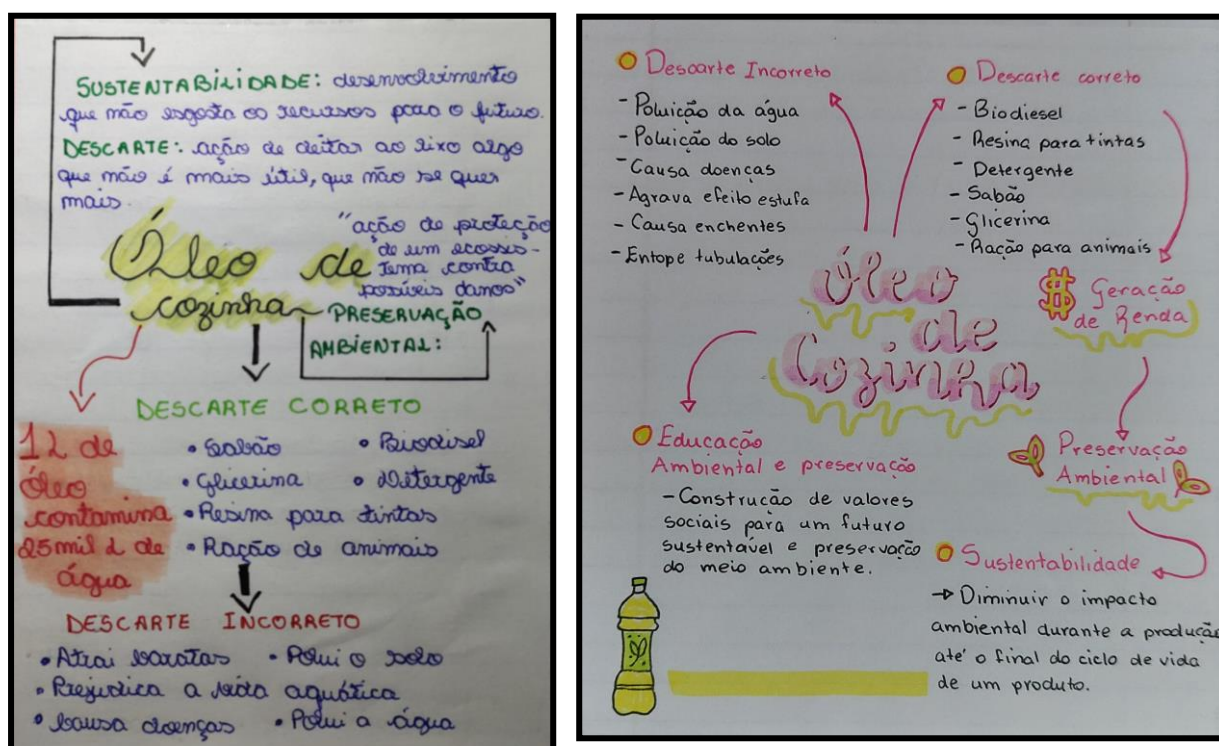 SUSTENTABILIDADE: desenvolvimento
que não esgota os recursos para o futuro.
DESCARTE: ação de deitar ao lixo algo
que não é mais útil, que não se quer
mais.
"ação de proteção
de um ecossis-
tema contra
possíveis danos"
Óleo de
cozinha
PRESERVAÇÃO
AMBIENTAL:
DESCARTE CORRETO
1L de
óleo
contamina
25mil L de
água
• Sabão • Biodisel
• Glicerina • Detergente
• Resina para tintas
• Ração de animais
DESCARTE INCORRETO
• Atrai baratas • Polui o solo
• Prejudica a vida aquática
• Causa doenças • Polui a água
Descarte Incorreto
- Poluição da água
- Poluição do solo
- Causa doenças
- Agrava efeito estufa
- Causa enchentes
- Entope tubulações
Descarte correto
- Biodiesel
- Resina para tintas
- Detergente
- Sabão
- Glicerina
- Ração para animais
Óleo
de
Cozinha
$ Geração
de Renda
Educação
Ambiental e preservação
- Construção de valores
sociais para um futuro
sustentável e preservação
do meio ambiente.
Preservação
Ambiental
Sustentabilidade
→ Diminuir o impacto
ambiental durante a produção
até o final do ciclo de vida
de um produto.